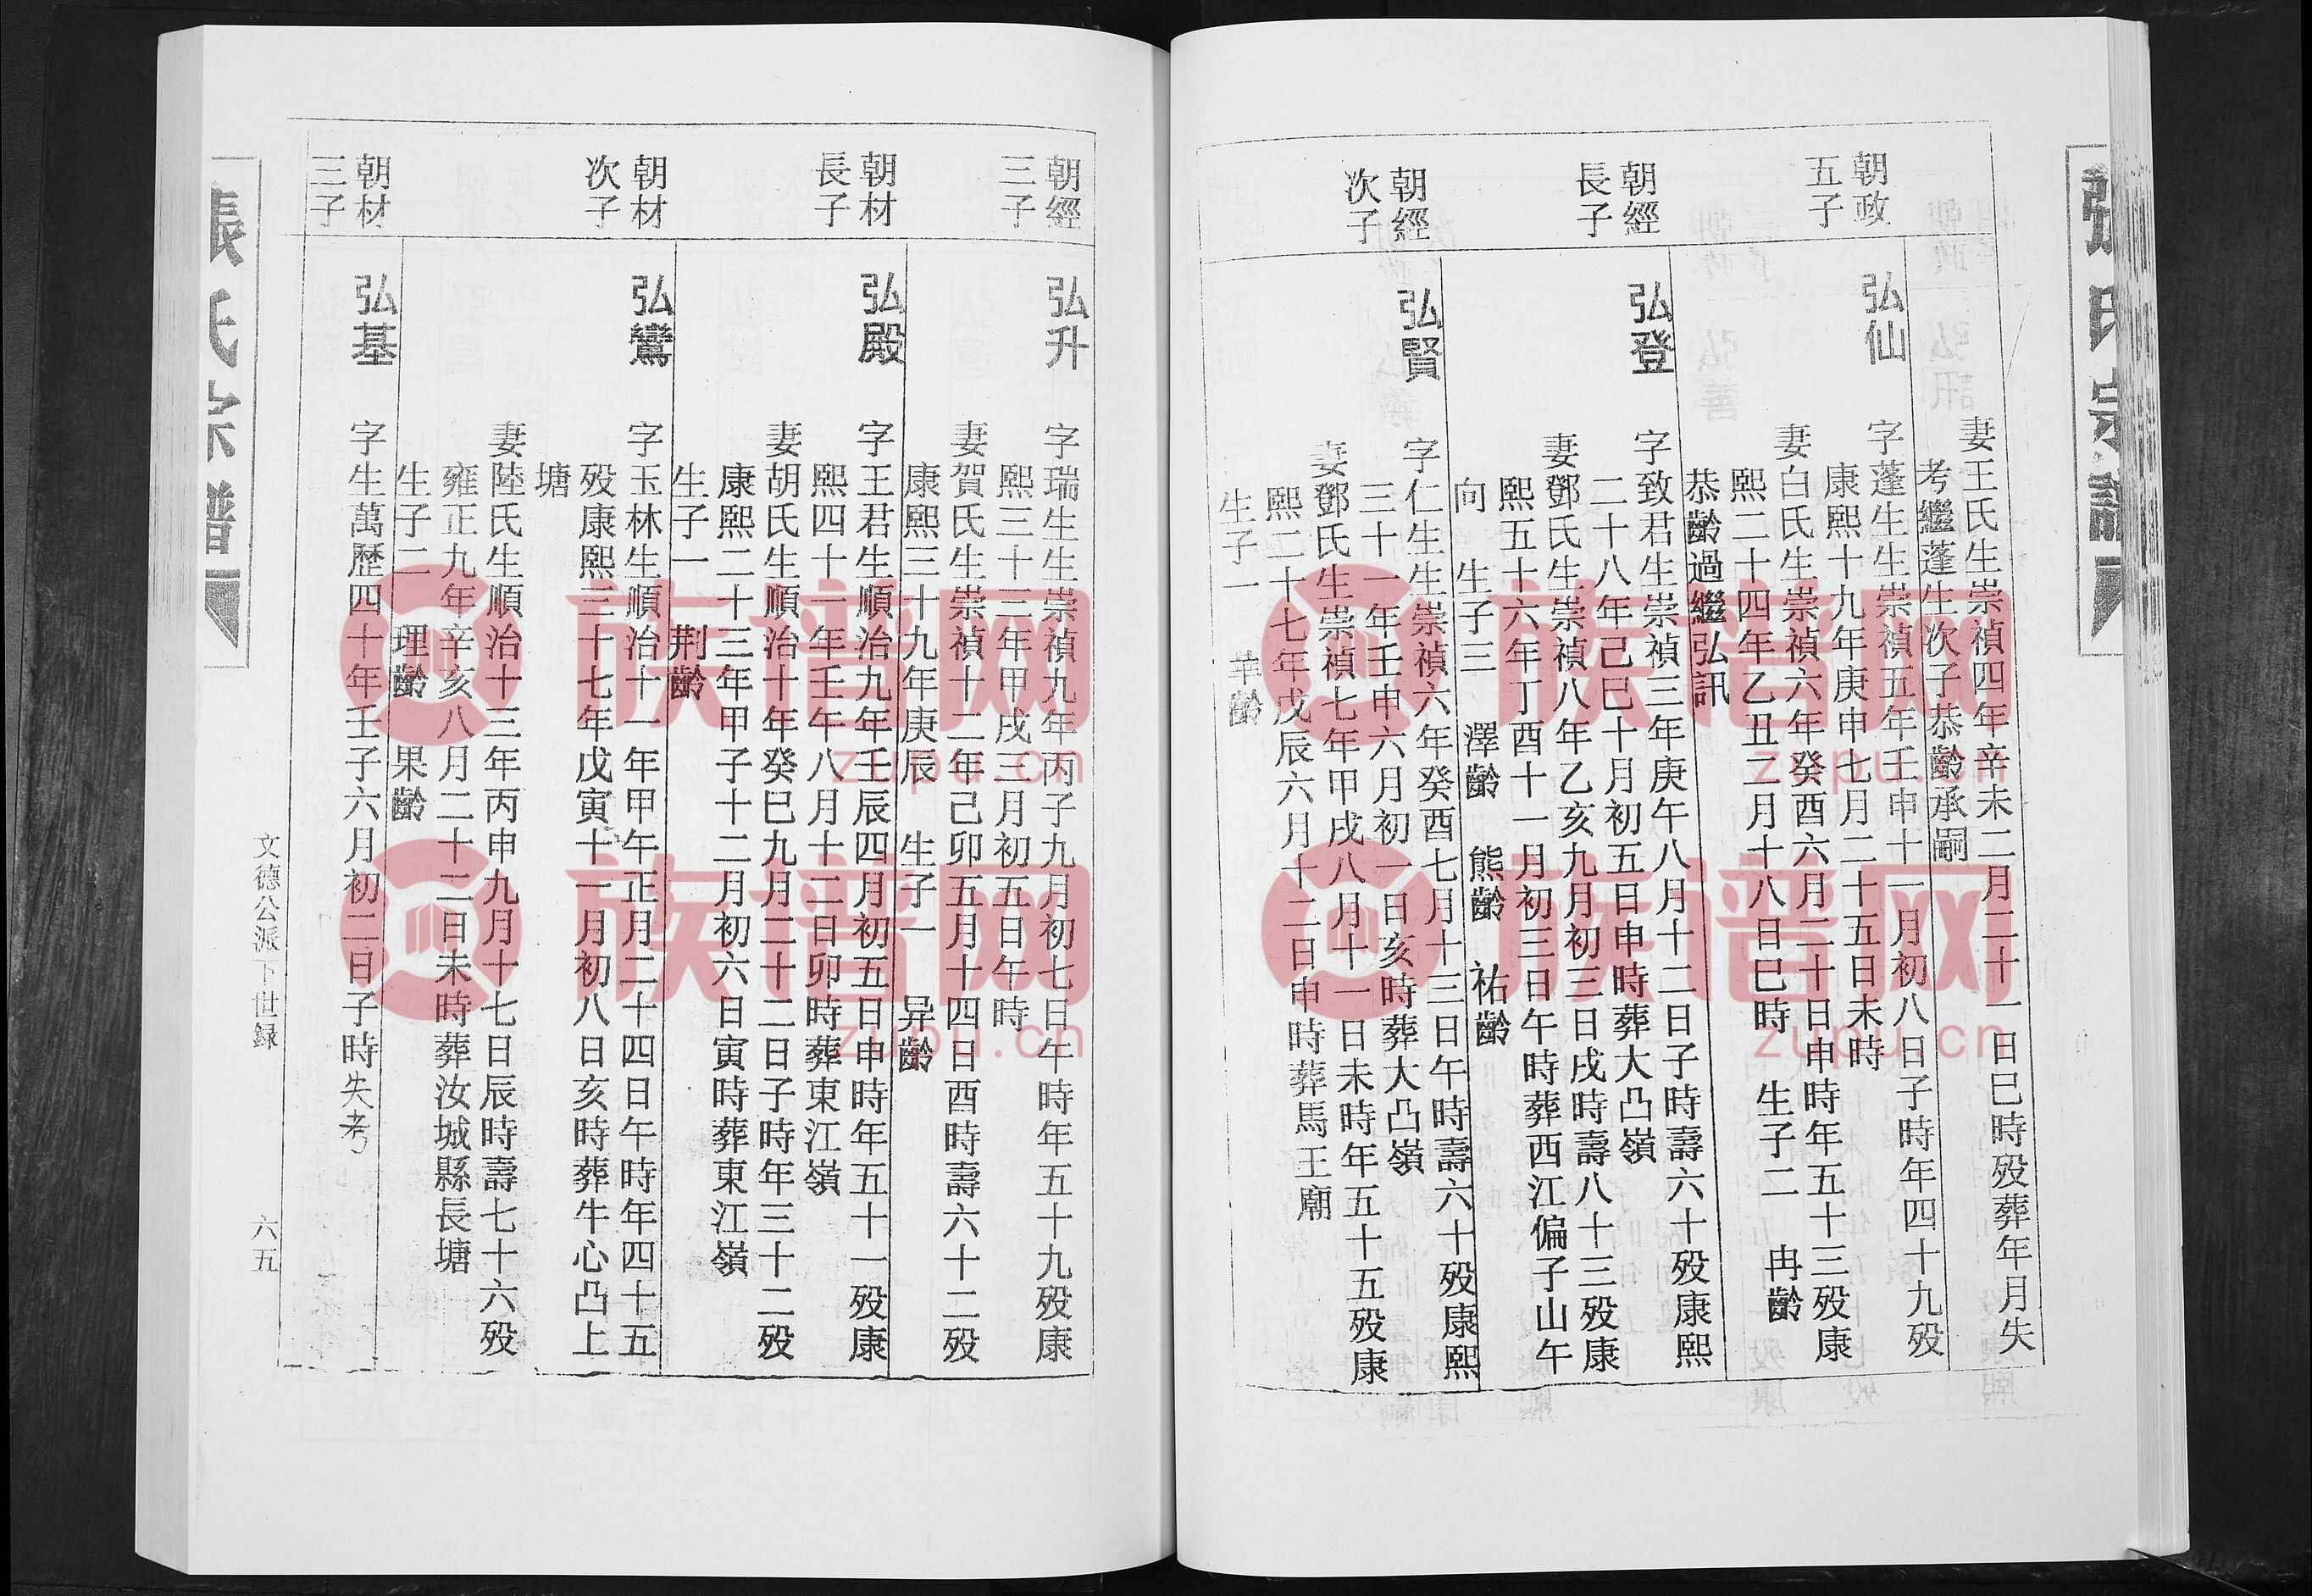 張氏宗譜
妻王氏生崇禎四年辛未二月二十一日巳時殁葬年月失
考繼蓬生次子恭齡承嗣
朝政
五子
弘仙
字蓬生生崇禎五年壬申十一月初八日子時年四十九殁
康熙十九年庚申七月二十五日未時
妻白氏生崇禎六年癸酉六月二十日申時年五十三殁康
熙二十四年乙丑二月十八日巳時 生子二 冉齡
恭齡過繼弘訊
朝經
長子
弘登
字致君生崇禎三年庚午八月十二日子時壽六十殁康熙
二十八年己巳十月初五日申時葬大凸嶺
妻鄧氏生崇禎八年乙亥九月初三日戌時壽八十三殁康
熙五十六年丁酉十一月初三日午時葬西江偏子山午
向 生子三 澤齡 熊齡 祐齡
朝經
次子
弘賢
字仁生生崇禎六年癸酉七月十三日午時壽六十殁康熙
三十一年壬申六月初一日亥時葬大凸嶺
妻鄧氏生崇禎七年甲戌八月十一日未時年五十五殁康
熙二十七年戊辰六月十二日申時葬馬王廟
生子一 華齡
朝經
三子
弘升
字瑞生生崇禎九年丙子九月初七日午時年五十九殁康
熙三十三年甲戌三月初五日午時
妻賀氏生崇禎十二年己卯五月十四日酉時壽六十二殁
康熙三十九年庚辰 生子一 异齡
朝材
長子
弘殿
字王君生順治九年壬辰四月初五日申時年五十一殁康
熙四十一年壬午八月十二日卯時葬東江嶺
妻胡氏生順治十年癸巳九月二十二日子時年三十二殁
康熙二十三年甲子十二月初六日寅時葬東江嶺
生子一 荆齡
朝材
次子
弘鸞
字玉林生順治十一年甲午正月二十四日午時年四十五
殁康熙三十七年戊寅十一月初八日亥時葬牛心凸上
塘
妻陸氏生順治十三年丙申九月十七日辰時壽七十六殁
雍正九年辛亥八月二十二日未時葬汝城縣長塘
生子二 理齡 果齡
朝材
三子
弘基
字生萬歷四十年壬子六月初二日子時失考
文德公派下世録
六五
張氏宗譜
族谱网
zupu.cn
族谱网
zupu.cn
族谱网
zupu.cn
族谱网
zupu.cn